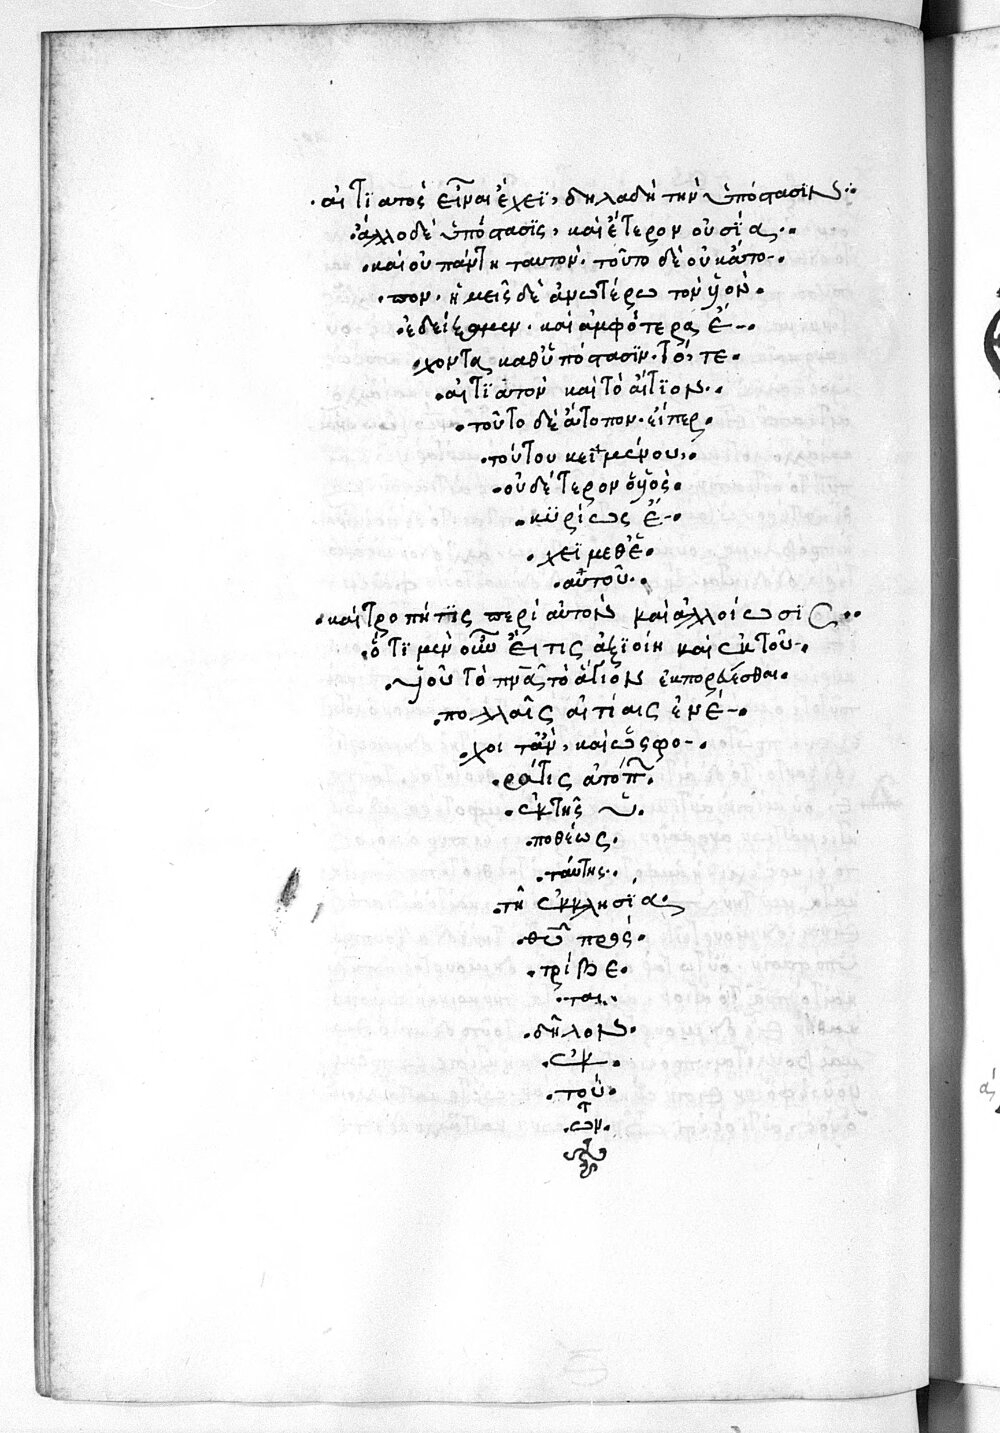 ·αἰτϊατὸς εἶναι ἔχεϊ, δηλαδὴ τὴν ὑπόστασϊν··
·ἄλλο δὲ ὑπόστασϊς, καὶ ἕτερον οὐσΐα··
·καὶ οὐ πάντη ταυτὸν· τοῦτο δὲ οὐκ ἄπο-·
·πον· ἡμεῖς δὲ ἀνωτέρω τὸν ὑϊὸν·
·ἐδείξαμεν· καὶ ἀμφότερα ἔ-·
·χοντα καθ' ὑπόστασϊν· τό, τε·
·αἰτϊατὸν καὶ τὸ αἴτϊον··
·τοῦτο δὲ ἄτοπον· εἴπερ·
·τούτου κειμένου,·
·οὐδέτερον ὁ ὑϊὸς·
·κϋρίως ἔ-·
·χεϊ μεθ' ἑ·
·αὐτοῦ··
·καὶ τροπή τϊς περὶ αὐτὸν καὶ ἀλλοίωσϊς··
·ὅτϊ μὲν οὖν εἴ τις ἀξϊοίη καὶ ἐκ τοῦ-·
·ὑϊοῦ τὸ πνᾶ τὸ ἅγϊον ἐκπορεύεσθαι·
·πολλαῖς αἰτίαις ἐνέ-·
·χοιτ' ἂν, καὶ ὡς φο-·
·ρά τις ἀπὸ
·ἐκ τῆς ὑ·
·ποθέως·
·ταύτης··
·τῆ ἐκκλησΐα·
·θῦ προς·
·τρίβε·
·ται·
·δῆλον·
·ἐκ·
·τού·
·των·